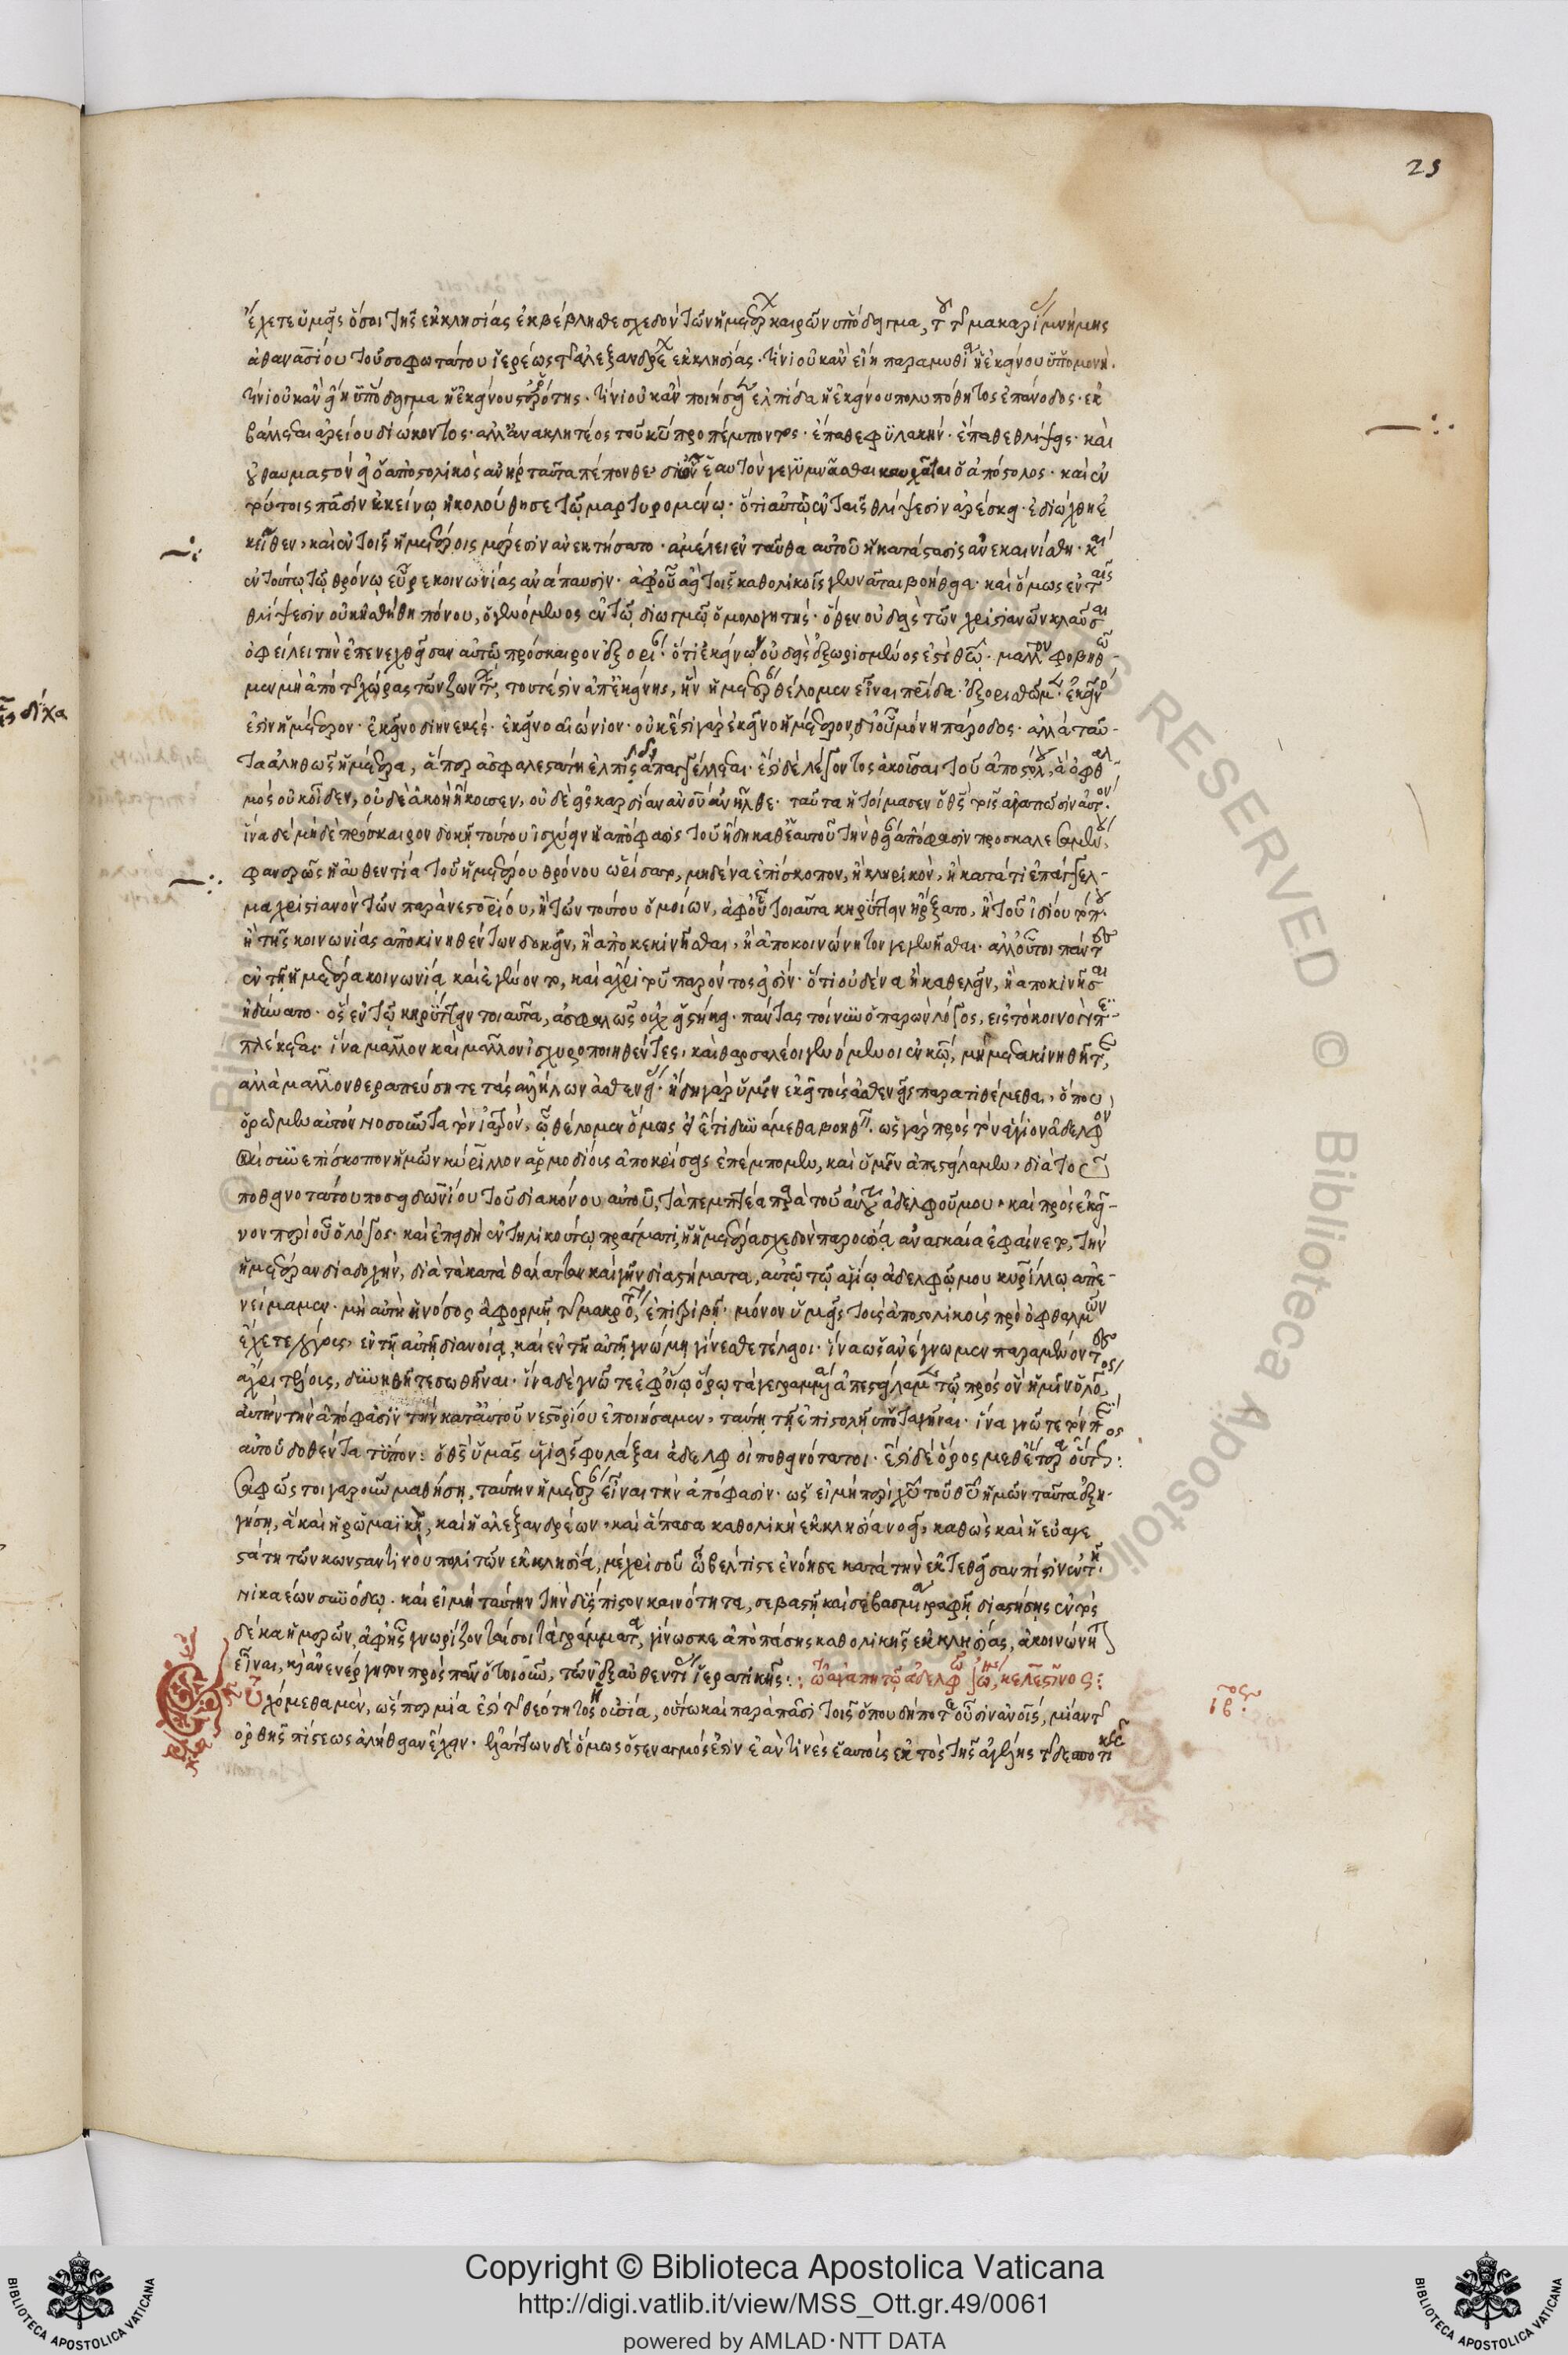 23
ἔχετε ὑμεῖς ὅσοι τῆς ἐκκλησίας ἐκβέβλησθε σχεδὸν τῶν ἡμετέρων καιρῶν ὑπόδειγμα, τοῦ τῆς μακαρίας μνήμης
ἀθανασίου τοῦ σοφωτάτου ἱερέως τῆς ἀλεξανδρέων ἐκκλησίας. τίνι οὐκ ἂν εἴη παραμυθία ἡ ἐκείνου ὑπομονή.
τίνι οὐκ ἂν εἴη ὑπόδειγμα ἡ ἐκείνου στερρότης. τίνι οὐκ ἂν ποιήσειεν ἐλπίδα ἡ ἐκείνου πολυπόθητος ἐπάνοδος. ἐκ
βάλλεται ἀρείου διώκοντος. ἀλλ' ἀνακλητέος τοῦ κυ προπέμποντος. ἔπαθε φυλακήν. ἔπαθε θλίψεις. καὶ
οὐ θαυμαστὸν εἰ ὁ ἀποστολικὸς ἀνὴρ ταῦτα πέπονθε, ἑαυτὸν γεγυμνᾶσθαι καυχᾶται ὁ ἀπόστολος. καὶ ἐν
τούτοις πᾶσιν ἐκείνῳ ἠκολούθησε τῷ μαρτυρομένῳ. ὅτι αὐτῷ ἐν ταῖς θλίψεσιν ἀρέσκει. ἐδιώχθη ἐ
κεῖθεν, καὶ ἐν τοῖς ἡμετέροις μέρεσιν ἀνεκτήσατο. ἀμέλει ἐνταῦθα αὐτοῦ ἡ κατάστασις ἀνεκαινίσθη. καὶ
ἐν τούτῳ τῷ θρόνῳ εὗρε κοινωνίας ἀνάπαυσιν. ἀφ' οὗ ἀεὶ τοῖς καθολικοῖς γίνεται βοήθεια. καὶ ὅμως ἐν ταῖς
θλίψεσιν οὐκ ᾐσθήθη πόνου, ὁ γενόμενος ἐν τῷ διωγμῷ ὁμολογητής. ὅθεν οὐδεὶς τῶν χριστιανῶν κλαῦσαι
ὀφείλει τὴν ἐπενεχθεῖσαν αὐτῷ πρόσκαιρον ἐξορίαν. ὅτι ἐκείνῳ οὐδεὶς ἐξωρισμένος ἐστὶ θῶ. μᾶλλον φοβηθῶ-
μεν μὴ ἀπὸ τῆς χώρας τῶν ζώντων, τουτέστιν ἀπ' ἐκείνης, ἣν ἡμετέραν θέλομεν εἶναι πατρίδα. ἐξορισθῶμεν. ἐκεῖνο
ἐστιν ἡμέτερον. ἐκεῖνο διηνεκές. ἐκεῖνο αἰώνιον. οὐκ ἔστι γὰρ ἐκεῖνο ἡμέτερον, δι' οὗ μόνη πάροδος. ἀλλὰ ταῦ-
τα ἀληθῶς ἡμέτερα, ἅπερ ἀσφαλεστάτη ἐλπὶς ἐπαγγέλλεται. ἔστι δὲ λέγοντος ἀκοῦσαι τοῦ ἀποστόλου, ἃ ὀφθαλ
μὸς οὐκ οἶδεν, οὐδὲ ἀκοὴ ἤκουσεν, οὐδὲ εἰς καρδίαν ἀνου ἀνῆλθε. ταῦτα ἡτοίμασεν ὁ θς τοῖς ἀγαπῶσιν αὐτόν.
ἵνα δὲ μηδὲ πρόσκαιρον δοκῇ τούτου ἰσχύειν ἡ ἀπόφασις τοῦ ἤδη καθ' ἑαυτοῦ τὴν θείαν ἀπόφασιν προσκαλεσαμένου,
φανερῶς ἡ αὐθεντία τοῦ ἡμετέρου θρόνου ὥρισατο, μηδένα ἐπίσκοπον, ἢ κληρικὸν, ἢ κατά τι ἐπάγγελ-
μα χριστιανὸν τῶν παρὰ νεστορίου, ἢ τῶν τούτου ὁμοίων, ἀφ' οὗ τοιαῦτα κηρύττειν ἤρξατο, ἢ τοῦ ἰδίου τόπου
ἢ τῆς κοινωνίας ἀποκινηθέντων δοκεῖν, ἢ ἀποκεκινῆσθαι, ἢ ἀποκοινώνητον γεγενῆσθαι. ἀλλ' οὗτοι πάντες
ἐν τῇ ἡμετέρα κοινωνίᾳ καὶ ἐγένοντο, καὶ ἄχρι τοῦ παρόντος εἰσίν. ὅτι οὐδένα ἢ καθελεῖν, ἢ ἀποκινῆσαι
ἠδύνατο. ὃς ἐν τῷ κηρύττειν τοιαῦτα, ἀσφαλῶς οὐχ εἱστήκει. πάντας τοίνυν ὁ παρὼν λόγος, εἰς τὸ κοινὸν ἐπι
πλέκεται. ἵνα μᾶλλον καὶ μᾶλλον ἰσχυροποιηθέντες, καὶ θαρσαλέοι γενόμενοι ἐν κῳ, μὴ μετακινηθῆτε,
ἀλλὰ μᾶλλον θεραπεύσητε τὰς ἀλλήλων ἀσθενείας. ἤδη γὰρ ὑμῖν ἐκεῖ τοὺς ἀσθενεῖς παρατιθέμεθα, ὅπου
ὁρῶμεν αὐτὸν νοσοῦντα τὸν ἰατρόν, ᾧ θέλομεν ὅμως εἰ ἔτι δυνάμεθα βοηθεῖν. ὡς γὰρ πρὸς τὸν ἅγιον ἀδελφὸν
καὶ συνεπίσκοπον ἡμῶν κύριλλον ἁρμοδίοις ἀποκρίσεις ἐπέμπομεν, καὶ ὑμῖν ἀπεστείλαμεν, διὰ τοῦ
ποθεινοτάτου ποσειδωνίου τοῦ διακόνου αὐτοῦ, τὰ πεμπτέα παρὰ τοῦ αὐτοῦ ἀδελφοῦ μου, καὶ πρὸς ἐκεῖ-
νον περὶ οὗ ὁ λόγος. καὶ ἐπειδὴ ἐν τηλικούτῳ πράγματι, ἡ ἡμετέρα σχεδὸν παρουσία ἀναγκαία ἐφαίνετο, τὴν
ἡμετέραν διαδοχὴν, διὰ τὰ κατὰ θάλατταν καὶ γῆν διαστήματα, αὐτῷ τῷ ἁγίῳ ἀδελφῷ μου κυρίλλῳ ἀπε-
νείμαμεν. μὴ αὐτὴ ἡ νόσος ἀφορμῇ τῆς μακρότητος, ἐπιτρίβῃ. μόνον ὑμεῖς τοὺς ἀποστολικοὺς πρὸ ὀφθαλμῶν
ἔχετε λόγους, ἐν τῇ αὐτῇ διανοίᾳ, καὶ ἐν τῇ αὐτῇ γνώμῃ γίνεσθε τέλειοι. ἵνα ὡς ἀνέγνωμεν παραμένοντες
ἄχρι τέλους, δυνηθῆτε σωθῆναι. ἵνα δὲ γνῶτε ἐφ' οἵῳ ὅρῳ τὰ γράμματα ἀπεστείλαμεν τῷ πρὸς ὃν ἡμῖν ὁ λόγος
αὐτὴν τὴν ἀπόφασιν τὴν κατ' αὐτοῦ νεστορίου ἐποιήσαμεν, ταύτῃ τῇ ἐπιστολῇ ὑποταγῆναι. ἵνα γνῶτε τὸν πρὸς
αὐτοῦ δοθέντα τύπον: ὁ θς ὑμᾶς ὑγιεῖς φυλάξαι ἀδελφοὶ ποθεινότατοι. ἔστι δὲ ὁ ὅρος μεθ' ἕτερα οὕτως:
Σαφῶς τοιγαροῦν μαθήσῃ, ταύτην ἡμετέραν εἶναι τὴν ἀπόφασιν. ὡς εἰ μὴ περὶ χυ τοῦ θυ ἡμῶν ταῦτα ἐξη-
γήσῃ, ἃ καὶ ἡ ῥωμαϊκὴ, καὶ ἡ ἀλεξανδρέων, καὶ ἅπασα καθολικὴ ἐκκλησία νοεῖ, καθὼς καὶ ἡ εὐαγε
στάτη τῶν κωνσταντινουπολιτῶν ἐκκλησία, μέχρι σοῦ ὦ βέλτιστε ἐνόησε κατὰ τὴν ἐκτεθεῖσαν πίστιν ἐν τῇ
νικαέων συνόδῳ. καὶ εἰ μὴ ταύτην τὴν δύσπιστον καινότητα, σεβαστῇ καὶ σεβασμίᾳ γραφῇ διαστήσῃς ἐντὸς
δέκα ἡμερῶν, ἀφ' ἧς γνωρίζονταί σοι τὰ γράμματα, γίνωσκε ἀπὸ πάσης καθολικῆς ἐκκλησίας, ἀκοινώνητον
εἶναι, καὶ ἀνενέργητον πρὸς πᾶν ὁτιοῦν, τῶν ἐξ αὐθεντίας ἱερατικῆς: τῷ ἀγαπητῷ ἀδελφῷ ἰωάννῃ, κελεστῖνος:
Εὐχόμεθα μὲν, ὥσπερ μία ἐστὶ τῆς θεότητος ἡ οὐσία, οὕτω καὶ παρὰ πᾶσι τοῖς ὅπου δήποτε οὖσιν ἀνοις, μίαν τῆς
ὀρθῆς πίστεως ἀλήθειαν ἔχειν. ἥττων δὲ ὅμως ὁ στεναγμός ἐστιν ἐάν τινες ἑαυτοὺς ἐκτὸς τῆς ἀγέλης τῆς δεσποτικῆς
Copyright © Biblioteca Apostolica Vaticana
http://digi.vatlib.it/view/MSS_Ott.gr.49/0061
powered by AMLAD·NTT DATA